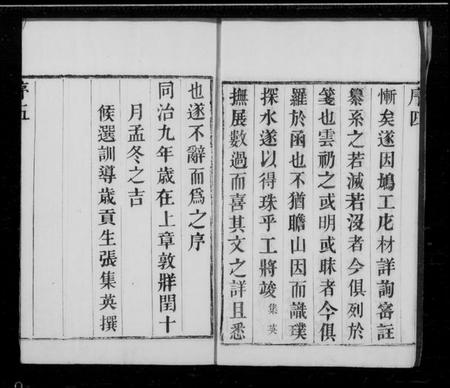 序四
慚矣遂因鳩工庀材詳詢審註
纂系之若滅若沒者今俱列於
箋也雲礽之或明或昧者今俱
羅於函也不猶瞻山因而識璞
探水遂以得珠乎工將竣集英
撫展數過而喜其文之詳且悉
也遂不辭而為之序
同治九年歲在上章敦牂閏十
月孟冬之吉
候選訓導歲貢生張集英撰
序五